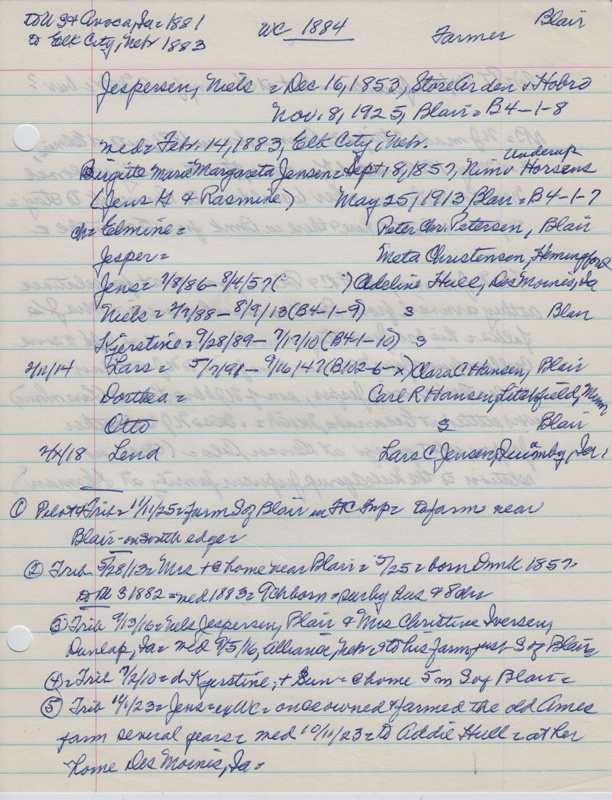 to US & Avoca, Ia = 1881
to Elk City, Nebr 1883
WC 1884
Farmer
Blair
Jespersen, Niels = Dec 16, 1853, Store Arden + Hobro
Nov. 8, 1925, Blair = B4-1-8
med = Feb. 14, 1883, Elk City, Nebr.
Birgitte Marie Margareta Jensen = Sept. 18, 1857, Nim Underup Horsens
(Jens H & Rasmine) May 25, 1913 Blair = B4-1-7
ch = Elmine = Peter Chr. Petersen, Blair
Jesper = Meta Christensen, Hemingford
Jens = 7/8/86 - 8/4/57 ( ) Adeline Hull, Des Moines, Ia
Niels = 2/7/88 - 8/9/13 (B4-1-9) s Blair
Kjerstine = 9/28/89 - 7/17/10 (B4-1-10) s
2/11/14 Lars = 5/7/91 - 9/16/47 (B102-6-x) Clara C Hansen, Blair
Dorthea = Carl R Hansen, Litchfield, Minn
Otto s Blair
Lena Lars C Jensen, Quimby, Ia.
① Pilot + Trib = 11/11/25 = farm S of Blair in FC Twp = to farm near
Blair - on south edge =
② Trib 5/28/13 = Mrs + @ home near Blair = 5/25 = born Dnmk 1857 =
to US 1882 = med 1883 = 9 ch born = surv by hus & 8 chr
③ Trib 9/13/16 = Niels Jespersen, Blair & Mrs Christine Iversen,
Dunlap, Ia = med 9/5/16, Alliance, Nebr = to his farm just S of Blair
④ = Trib 7/2/10 = d Kjerstine, + Sun = @ home 5 m S of Blair =
⑤ Trib 11/1/23 = Jens = ex WC = once owned & farmed the old Ames
farm several years = med 10/11/23 = to Addie Hull = at her
home Des Moines, Ia =